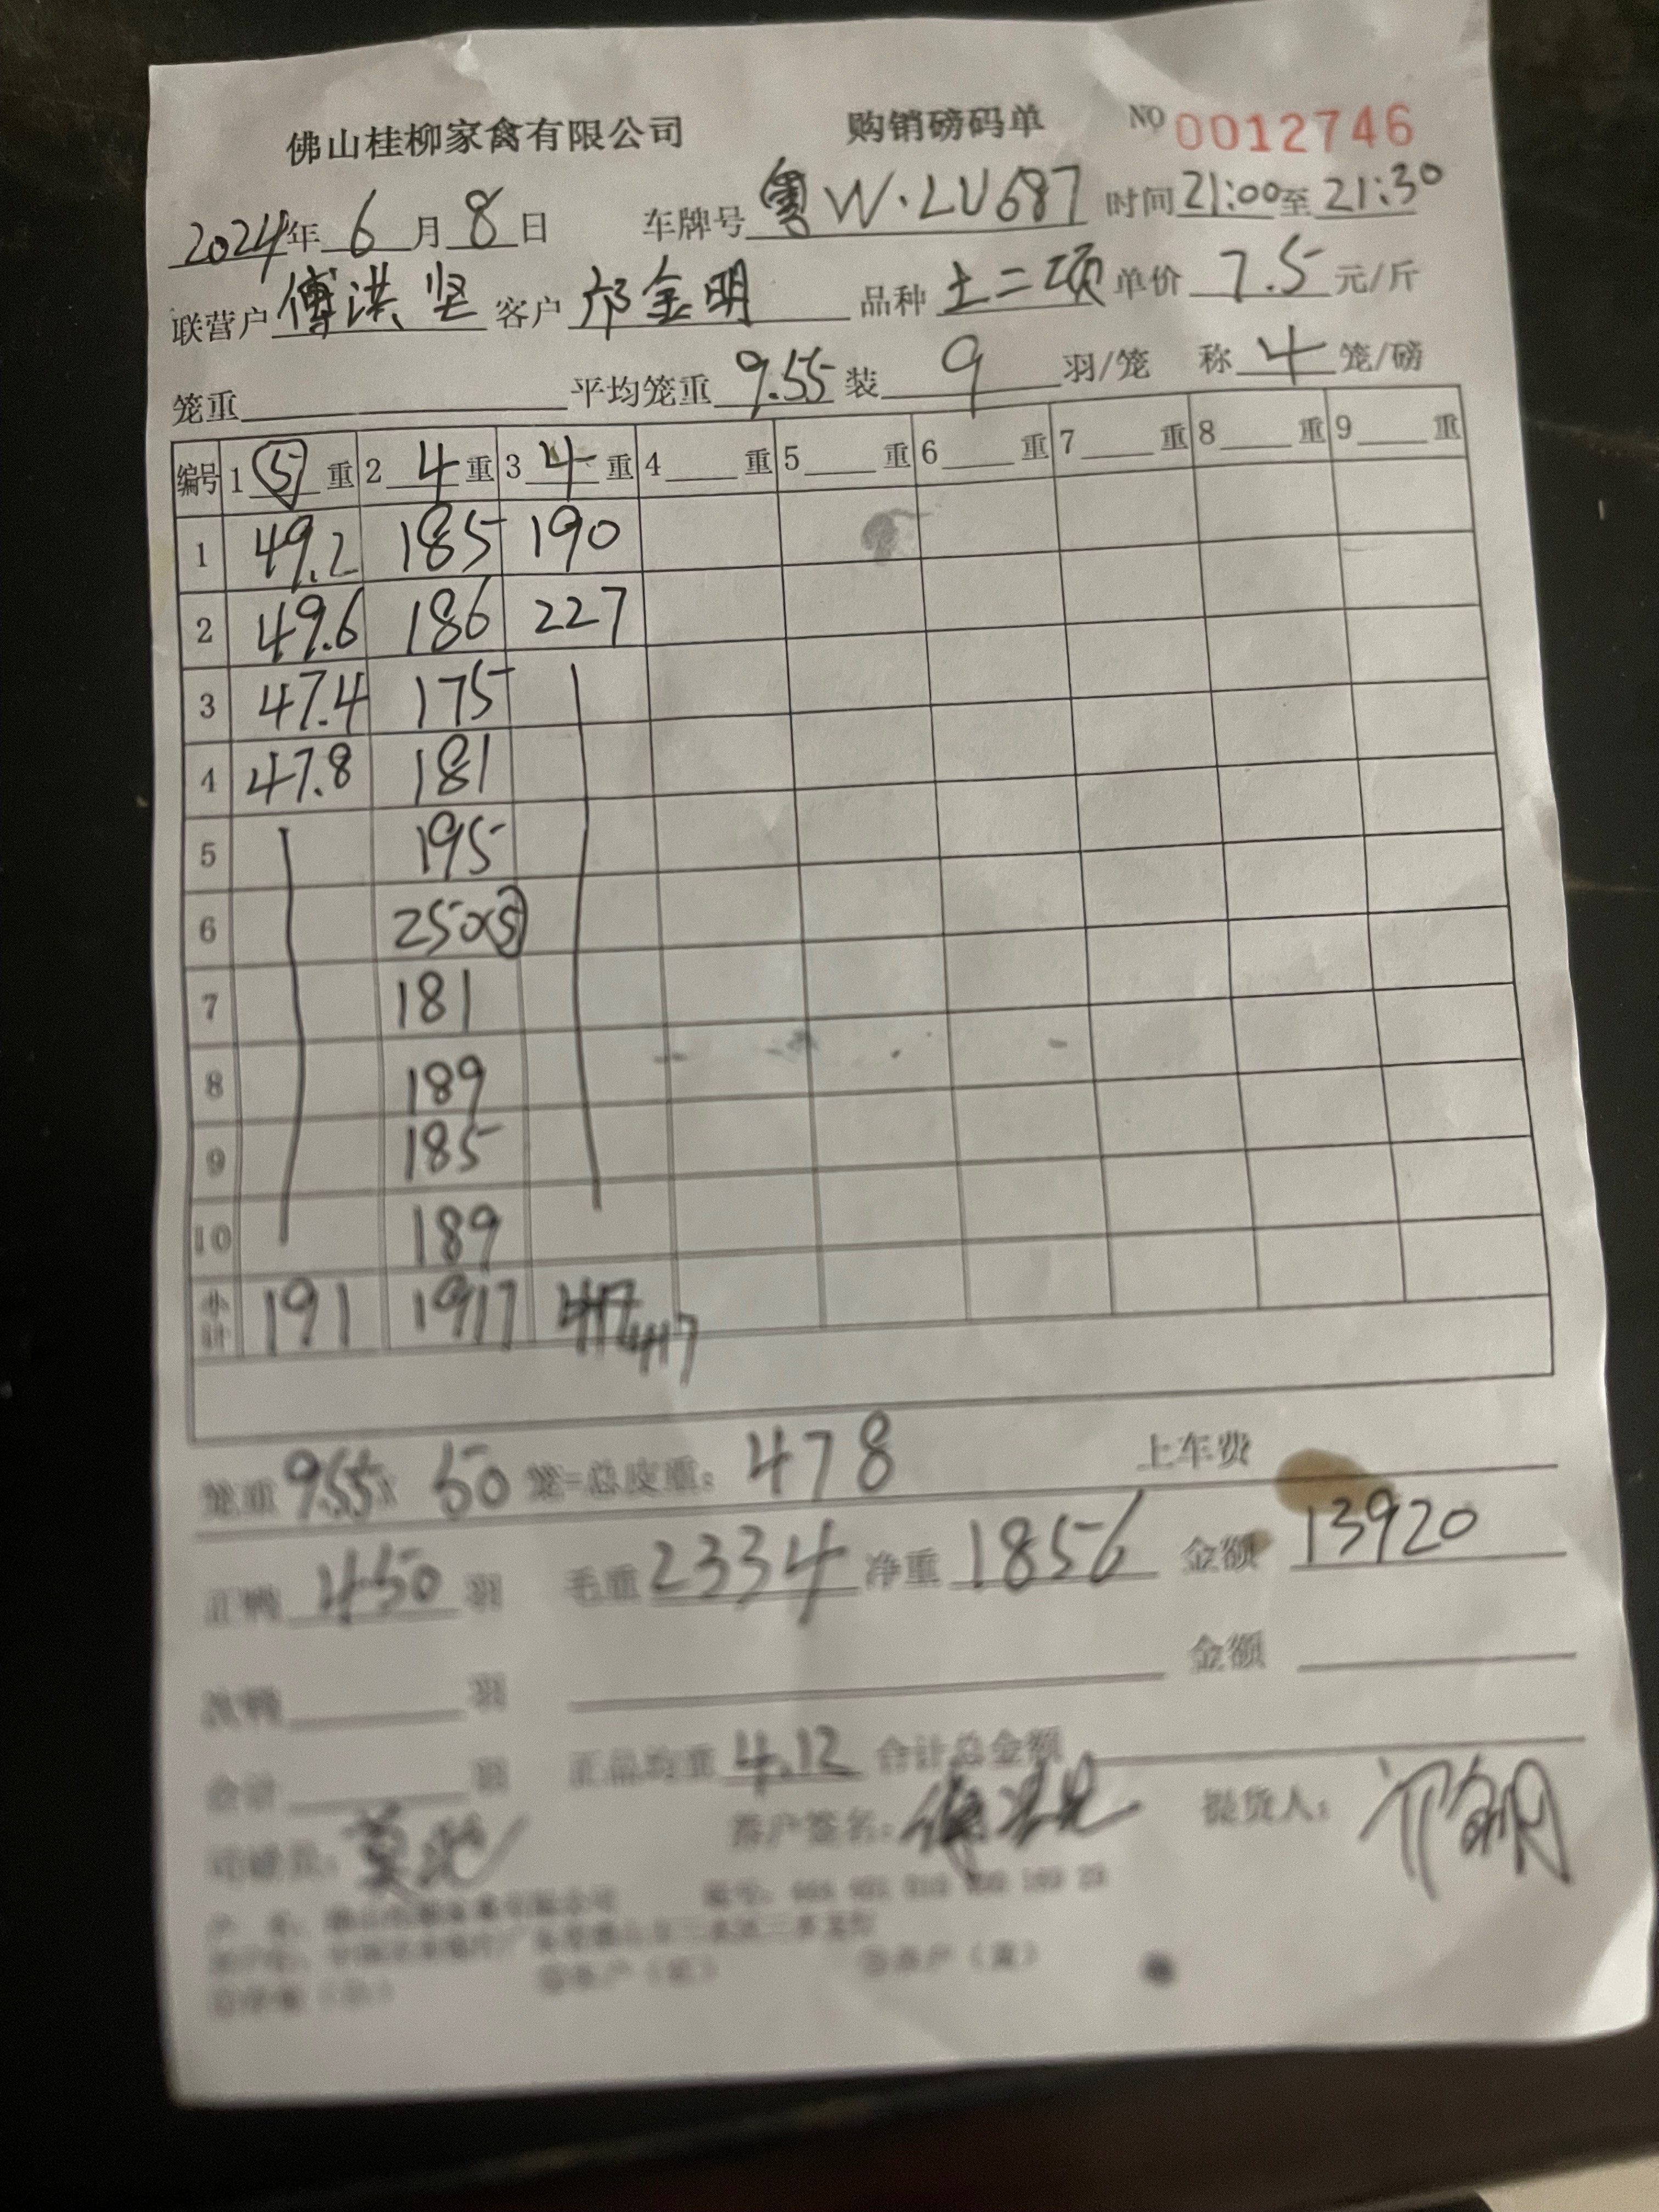 佛山桂柳家禽有限公司 购销磅码单 NO 0012746
2024年 6 月 8 日 车牌号 粤W·LU687 时间 21:00 至 21:30
联营户 傅洪坚 客户 邝金明 品种 土二项 单价 7.5 元/斤
笼重 平均笼重 9.55 装 9 羽/笼 称 4 笼/磅
编号 1 5 重 2 4 重 3 4 重 4 重 5 重 6 重 7 重 8 重 9 重
1 49.2 185 190
2 49.6 186 227
3 47.4 175
4 47.8 181
5 195
6 250×5
7 181
8 189
9 185
10 189
小计 191 1917 417
笼重 9.55× 50 笼=总皮重: 478 上车费
正鸭 450 羽 毛重 2334 净重 1856 金额 13920
次鸭 羽 金额
合计 羽 正品均重 4.12 合计总金额
司磅员: 养户签名: 提货人: